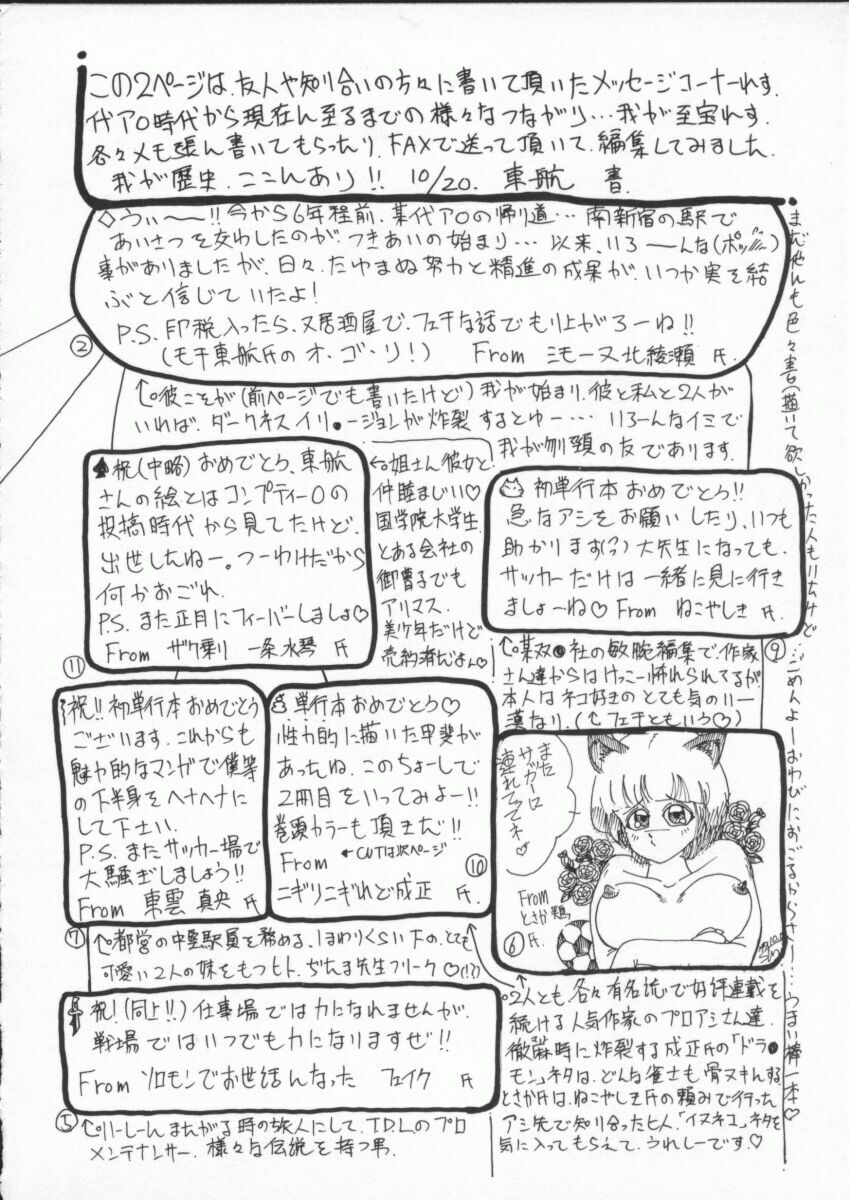 この2ページは、友人や知り合いの方々に書いて頂いたメッセージコーナーれす.
代ア○時代から現在ん至るまでの様々なつながり…我が至宝れす.
各々メモ張ん書いてもらったり、FAXで送って頂いて、編集してみました.
我が歴史、ここんあり!! 10/20. 車航 書.
◇うぃ〜〜!! 今から6年程前、某代ア○の帰り道… 南新宿の駅で
あいさつを交わしたのが、つきあいの始まり… 以来、いろ〜〜んな(ポッ)
事がありましたが、日々、たゆまぬ努力と精進の成果が、いつか実を結
ぶと信じていたよ!
P.S. 印税入ったら、又居酒屋で、フェチな話でもり上がろーね!!
(モチ車航氏のオ・ゴ・リ!) From ミモーヌ北綾瀬 氏.
②
↑○彼こそが(前ページでも書いたけど)我が始まり、彼と私と2人が
いれば、ダークネスイリ●ージョンが炸裂するとゆー… いろーんなイミで
我が刎頸の友であります.
♠祝(中略)おめでとう、車航
さんの絵とはコンプティー○の
投稿時代から見てたけど、
出世したねー。つーわけだから
何かおごれ.
P.S. また正月にフィーバーしましょ♡
From ザク乗り 一条水琴 氏
⑪
←○姐さん彼女と
仲睦まじい♡
国学院大学生.
とある会社の
御曹子でも
アリマス.
美少年だけど
売約済だよん♡
初単行本おめでとう!!
急なアシをお願いしたり、いつも
助かります(?)大先生になっても、
サッカーだけは一緒に見に行き
ましょーね♡ From ねこやしき 氏.
⑨
↑○某双●社の敏腕編集で、作家
さん達からはけっこー怖れられてるが
本人はネコ好きのとても気のいー
漢なり.(↑フェチともいう♡)
祝!! 初単行本おめでとう
ございます. これからも
魅力的なマンガで僕等
の下半身をヘナヘナに
して下さい.
P.S. またサッカー場で
大騒ぎしましょう!!
From 東雲 真央 氏
⑦
単行本おめでとう♡
性力的に描いた甲斐が
あったね. このちょーしで
2冊目をいってみよー!!
巻頭カラーも頂きだ!!
From ←CUTは次ページ
⑩
ニギリニギれど成正 氏.
また
サガーロ
連れてってネ♡
From
とさか鶏
⑥氏.
↑○都営の中堅駅員を務める、1まわりくらい下の、とても
可愛い2人の妹をもつヒト. ぢたま先生フリーク♡(!?)
祝!(同上!!)仕事場では力になれませんが、
戦場ではいつでも力になりますぜ!!
From ソロモンでお世話んなった フェイク 氏
⑤
↑○りーしーん まんがる時の旅人にして、TDLのプロ
メンテナンサー. 様々な伝説を持つ男.
↑○2人とも、各々有名誌で好評連載を
続ける人気作家のプロアシさん達.
徹麻時に炸裂する成正氏の「ドラ●
モン」ネタは、どんな雀士も骨ヌキんする.
とさか氏は、ねこやしき氏の頼みで行った
アシ先で知り合ったヒト.「イヌネコ」ネタを
気に入ってもらえて、うれしーです.♡
まだやんも色々書(描)いて欲しかった人もいたけど…ごめんよーおわびにおごるからさー… うまい棒一本♡